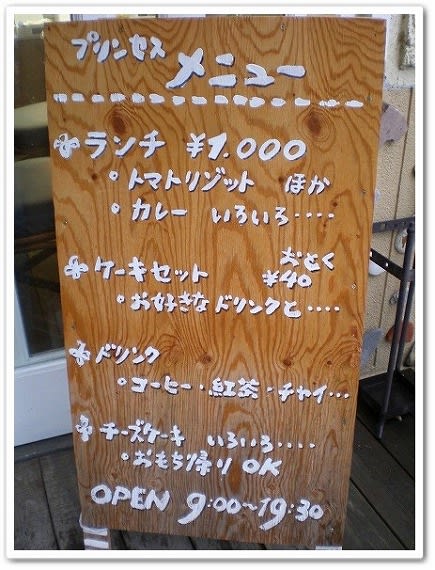 プリンセス
メニュー
ランチ ¥1.000
・トマトリゾット ほか
・カレー いろいろ････
ケーキセット おとく ¥40
・お好きなドリンクと････
ドリンク
・コーヒー・紅茶・チャイ･･･
チーズケーキ いろいろ････
・おもち帰りOK
OPEN 9:00~19:30